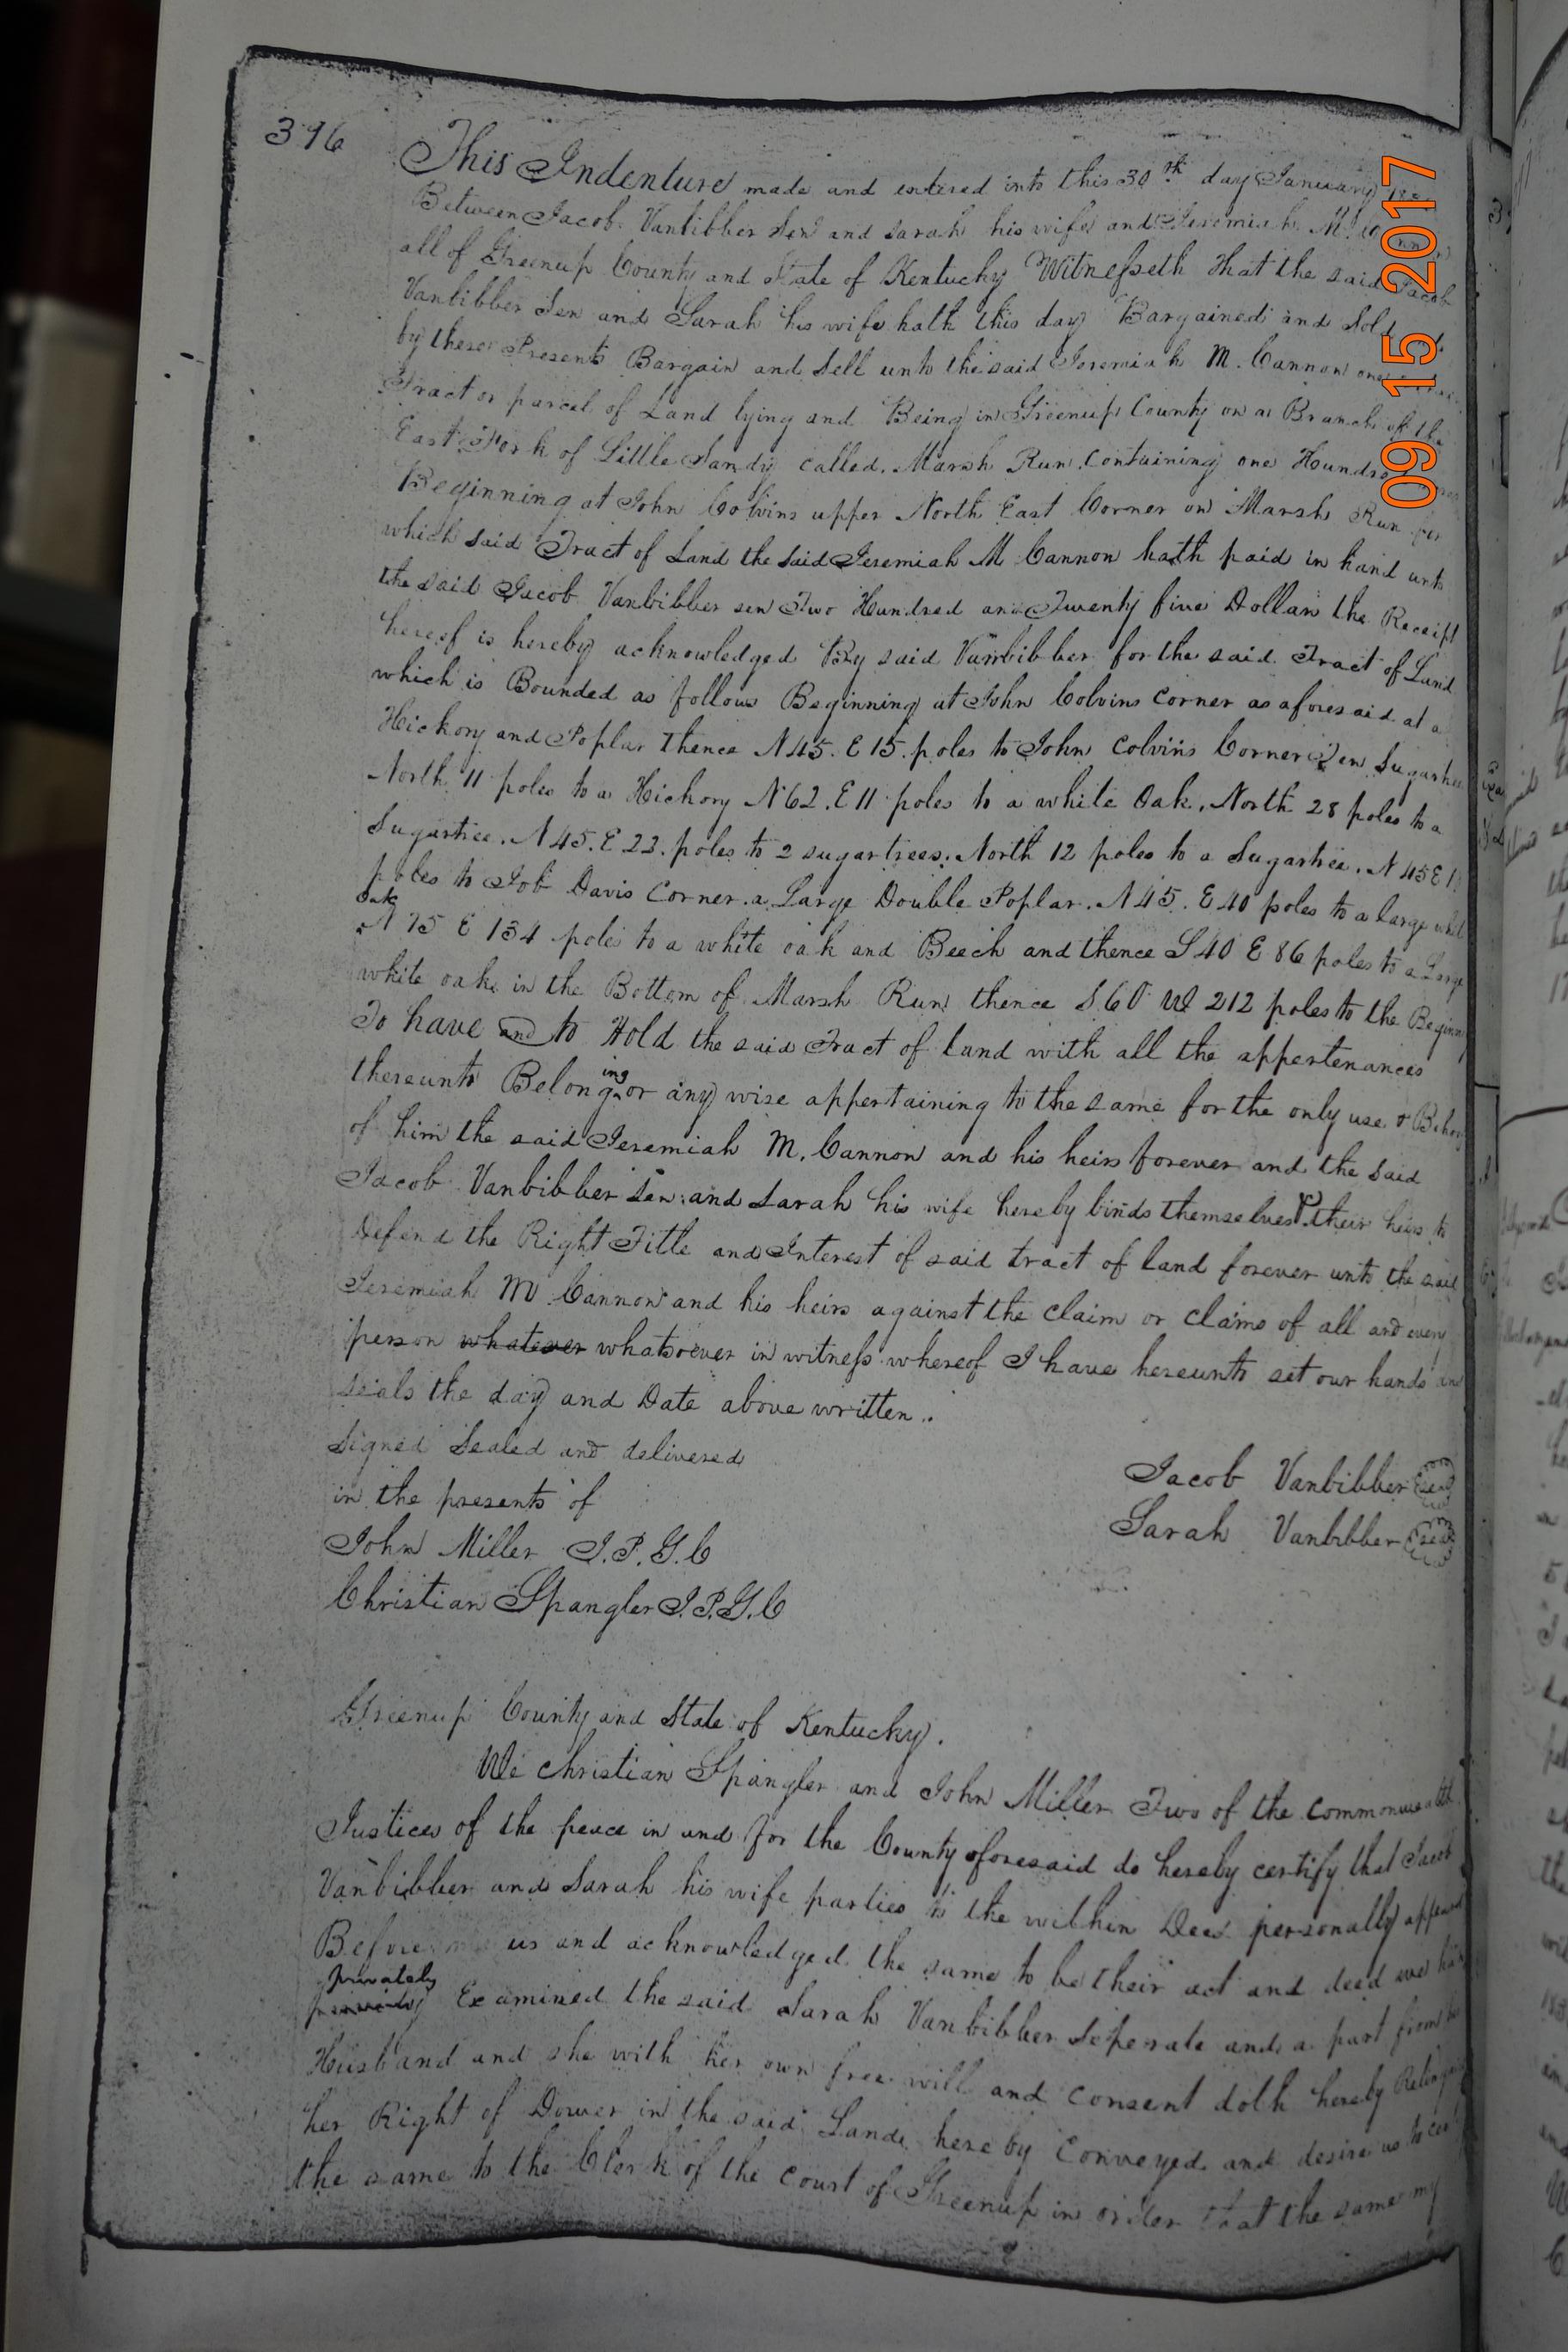 396
This Indenture made and entered into this 30th day January
Between Jacob Vanbibber Sen and Sarah his wife and Jeremiah M.
all of Greenup County and State of Kentucky Witnesseth that the said Jacob
Vanbibber Sen and Sarah his wife hath this day Bargained and Sold
by these Presents Bargain and Sell unto the said Jeremiah M. Cannon one
Tract or parcel of Land lying and Being in Greenup County on a Branch of the
East Fork of Little Sandy called Marsh Run containing one Hundred
Beginning at John Colvins upper North East Corner on Marsh Run for
which said Tract of Land the said Jeremiah M Cannon hath paid in hand unto
the said Jacob Vanbibber sen Two Hundred and Twenty five Dollars the Receipt
hereof is hereby acknowledged By said Vanbibber for the said Tract of Land
which is Bounded as follows Beginning at John Colvins corner as aforesaid at a
Hickory and Poplar thence N45. E 15. poles to John Colvins Corner Sugartree
North 11 poles to a Hickory N62. E 11 poles to a white Oak, North 28 poles to a
Sugartree. N45. E 22. poles to 2 sugartrees. North 12 poles to a Sugartree. N45 E
poles to Job Davis Corner. a Large Double Poplar. N45. E 40 poles to a large whit
oak
N 75 E 134 poles to a white oak and Beech and thence S 40 E 86 poles to a Large
white oak in the Bottom of Marsh Run thence S 60 W 212 poles to the Begin
To have and to Hold the said Tract of land with all the appertenances
thereunto Belonging or any wise appertaining to the same for the only use & Behoof
of him the said Jeremiah M. Cannon and his heirs forever and the said
Jacob Vanbibber Sen and Sarah his wife hereby binds themselves & their heirs to
Defend the Right Title and Interest of said tract of land forever unto the said
Jeremiah M Cannon and his heirs against the claim or claims of all and every
person whatever whatsoever in witness whereof I have hereunto set our hands and
seals the day and Date above written.
Signed Sealed and delivered
in the presents of
Jacob Vanbibber seal
John Miller J.P.G.C
Sarah Vanbibber seal
Christian Spangler J.P.G.C
Greenup County and State of Kentucky.
We Christian Spangler and John Miller Two of the commonwealth
Justices of the peace in and for the County oforesaid do hereby certify that Jacob
Vanbibber and Sarah his wife parties to the within Deed personally appeared
Before us and acknowledged the same to be their act and deed we
privately
Examined the said Sarah Vanbibber Seperate and a part from
Husband and she with her own free will and consent doth hereby
her Right of Dower in the said Lande hereby Conveyed and desire us to
the same to the Clerk of the Court of Greenup in order that the same my
09 15 2017